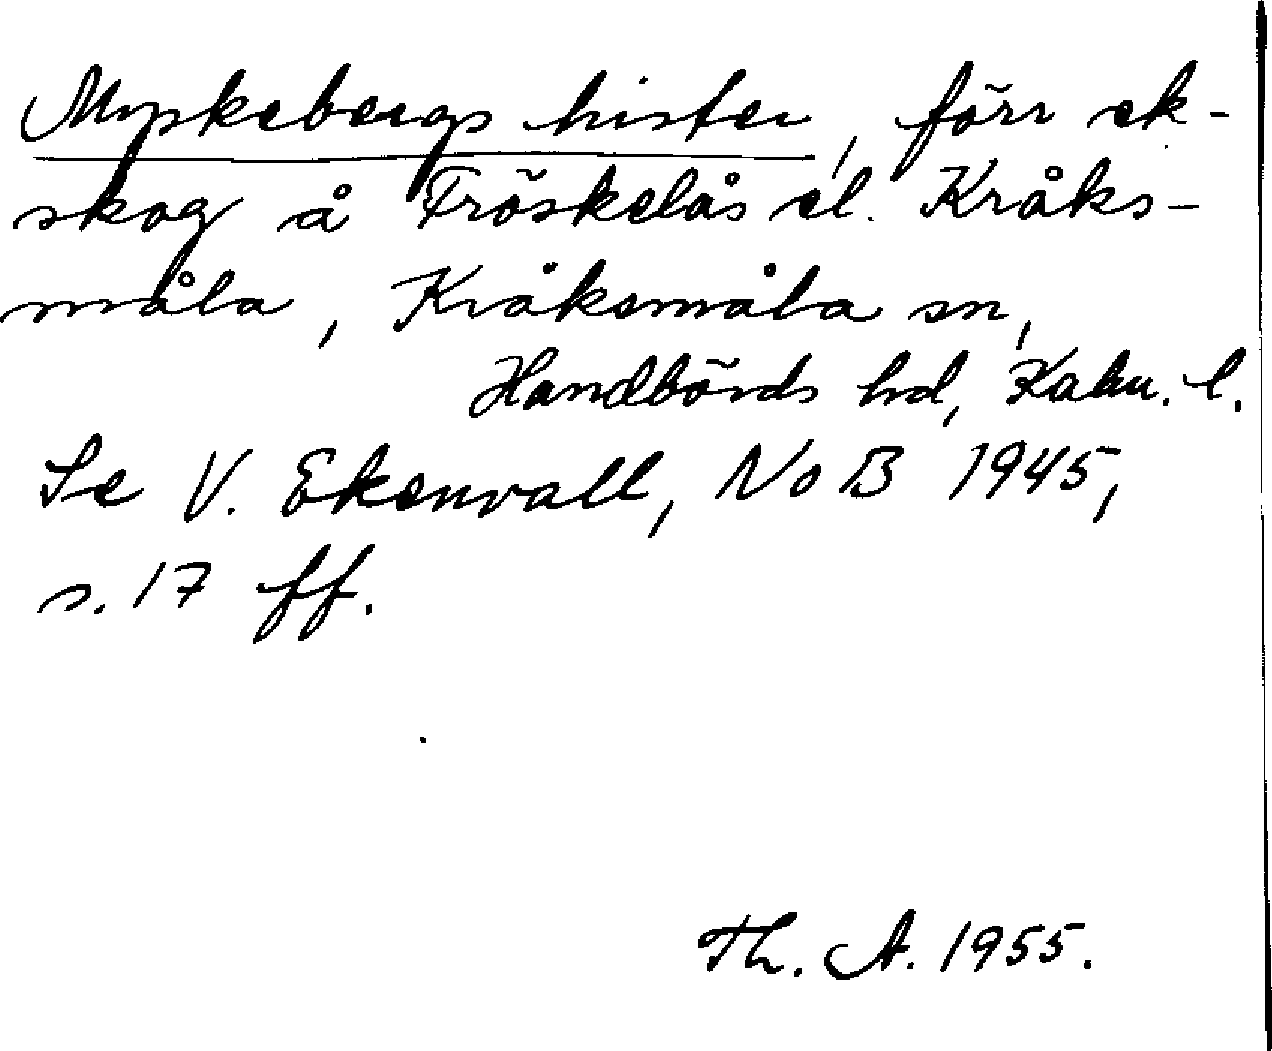 Myskebergs hister, förr ek-
skog å Fröskelås el. Kråks-
måla, Kråksmåla sn,
Handbörds hd, Kalm. l.
Se V. Ekenvall, NoB 1945,
s. 17 ff.
Th. A. 1955.